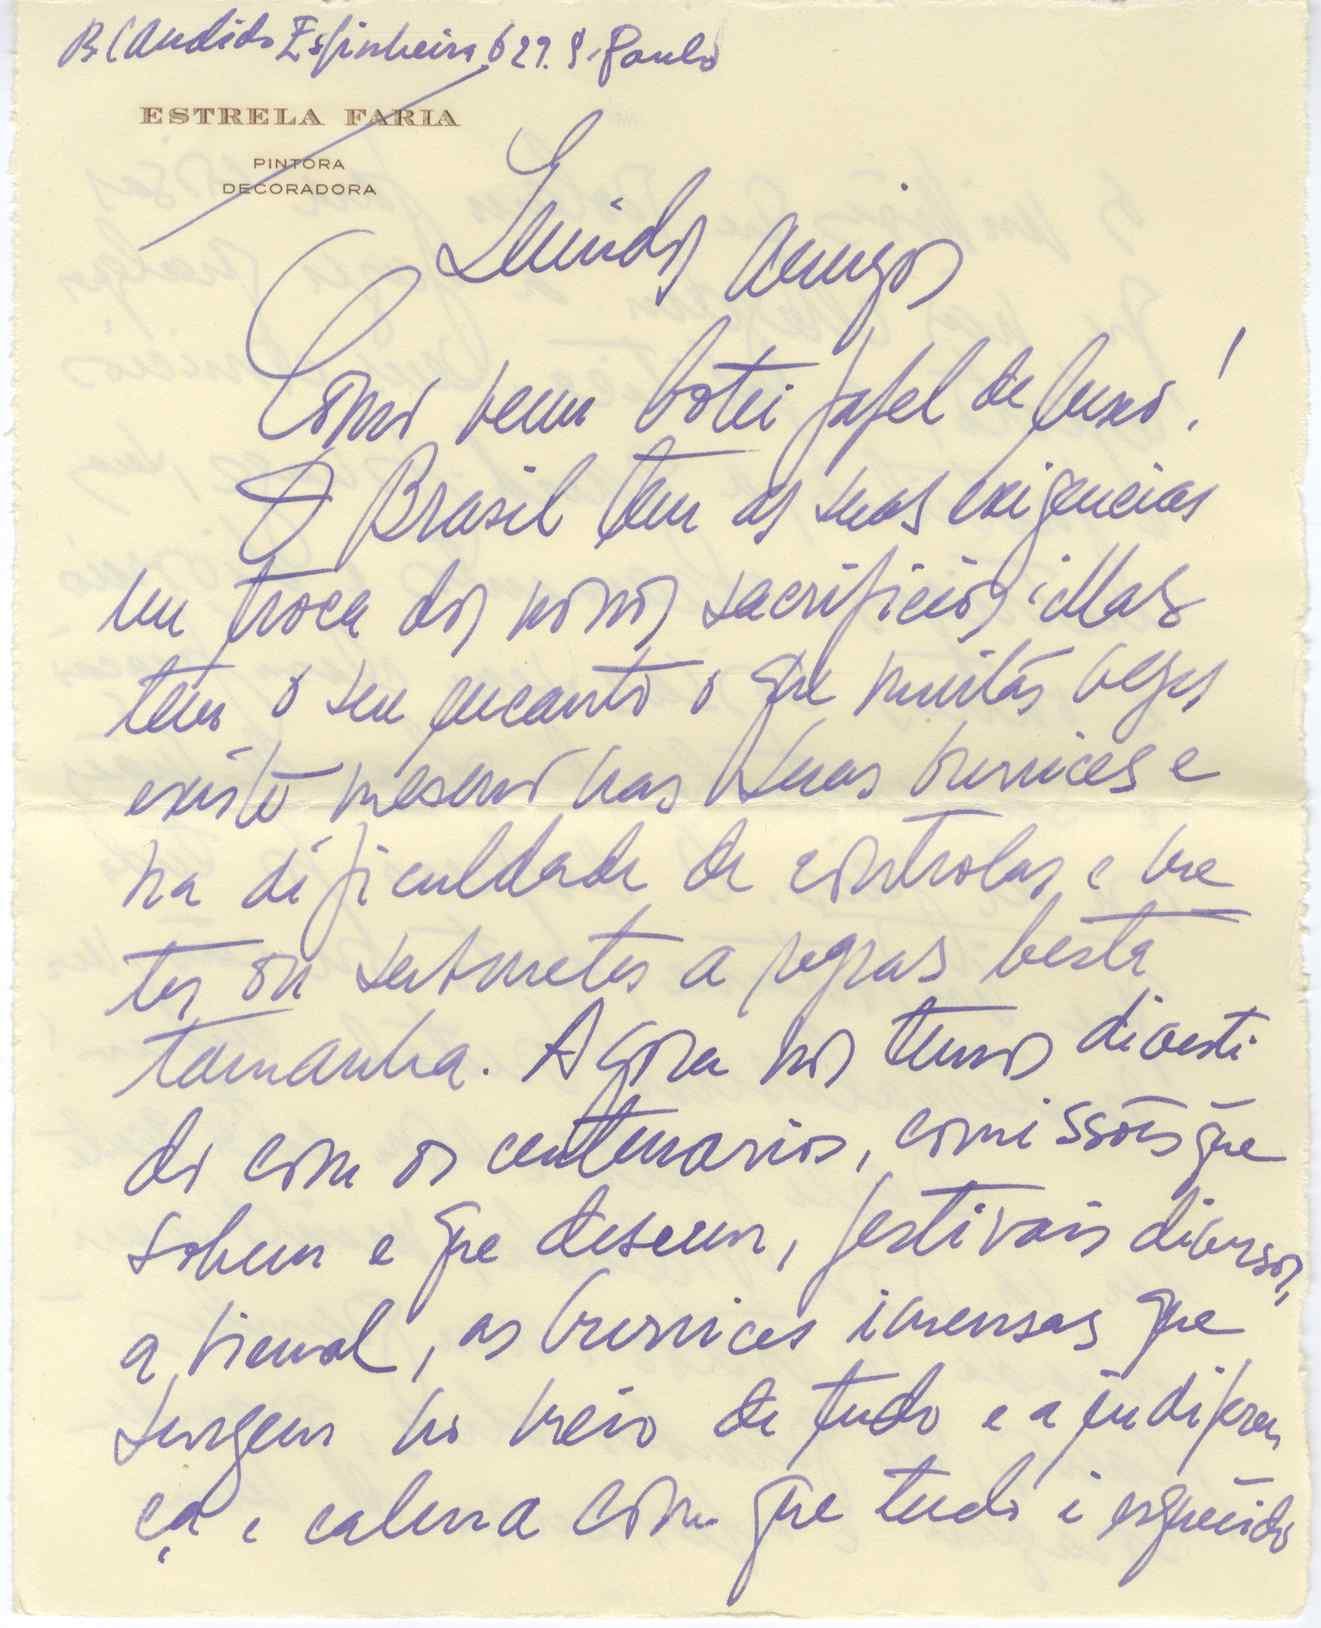 R Candido Espinheira 629. S. Paulo
ESTRELA FARIA
PINTORA
DECORADORA
Lenidos amigos
Como veem botei papel de luxo!
O Brasil tem as suas exigencias
em troca dos nossos sacrificios; Mas
tem o seu encanto o que muitas vezes
existe mesmo nas suas burrices e
na dificuldade de controlar, e me
ter ou submeter a regras besta
tamanha. Agora nos temos diverti
do com os centenarios, comissões que
sobem e que descem, festivais diversos,
a bienal, as burrices imensas que
surgem no meio de tudo e a indiferen
ça e calma com que tudo é esquecido